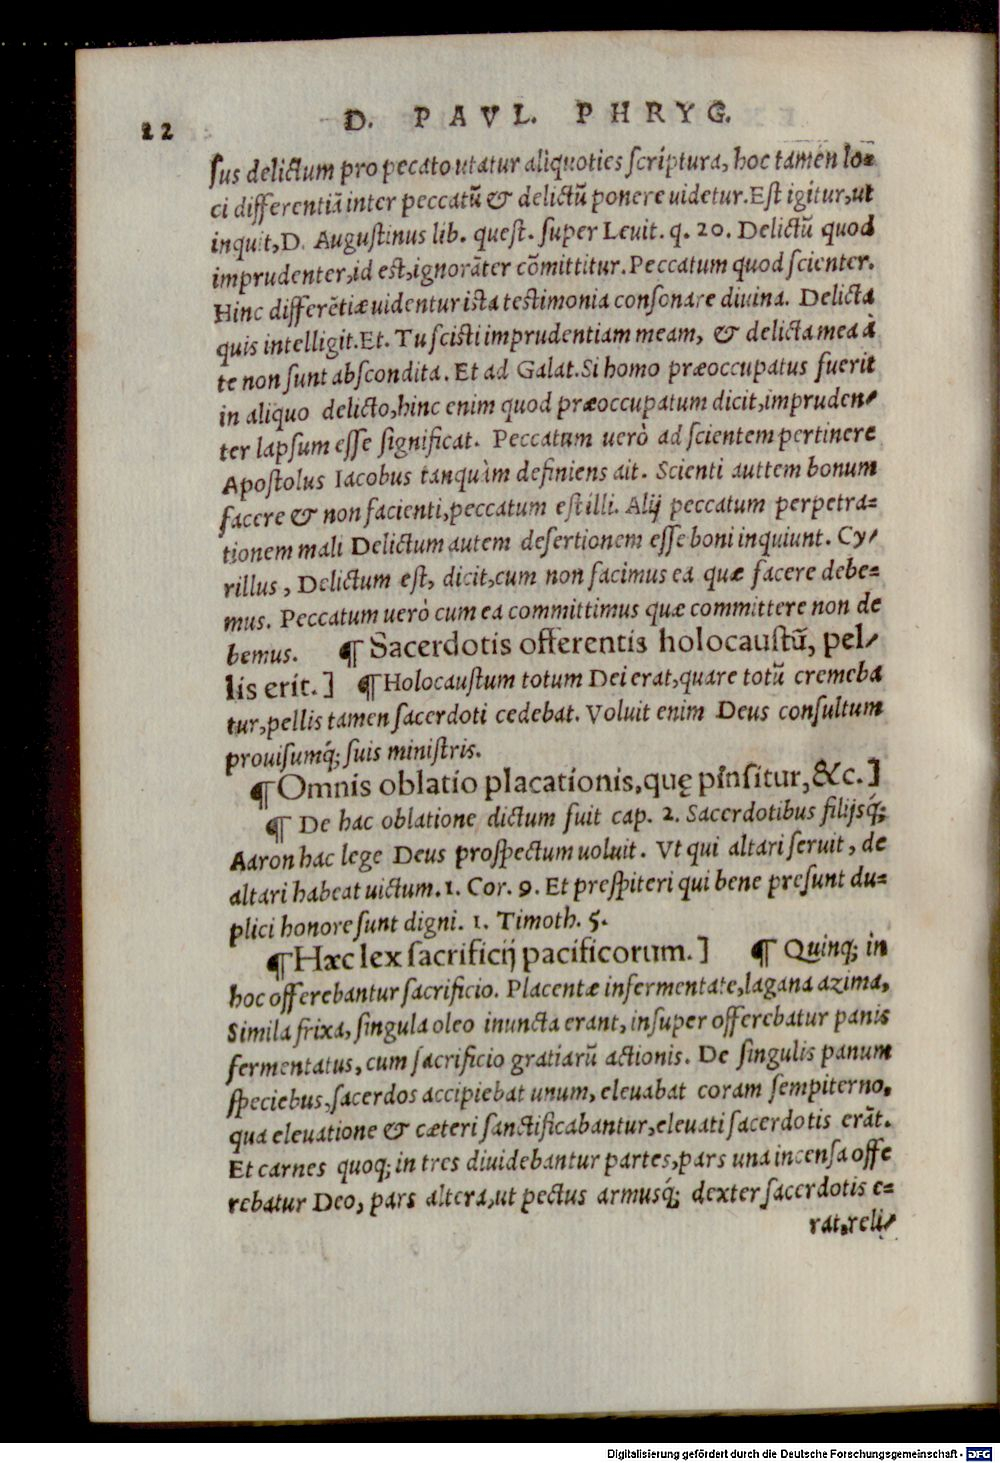 22
D. PAVL. PHRYG.
sus delictum pro pecato utatur aliquoties scriptura, hoc tamen lo=
ci differentiā inter peccatū & delictū ponere uidetur. Est igitur, ut
inquit, D. Augustinus lib. quest. super Leuit. q. 20. Delictū quod
imprudenter, id est, ignorāter cōmittitur. Peccatum quod scienter.
Hinc differētiæ uidentur ista testimonia consonare diuina. Delicta
quis intelligit. Et. Tu scisti imprudentiam meam, & delicta mea à
te non sunt abscondita. Et ad Galat. Si homo præoccupatus fuerit
in aliquo delicto, hinc enim quod præoccupatum dicit, impruden⸗
ter lapsum esse significat. Peccatum uerò ad scientem pertinere
Apostolus Iacobus tanquàm definiens ait. Scienti auttem bonum
facere & non facienti, peccatum est illi. Alij peccatum perpetra=
tionem mali Delictum autem desertionem esse boni inquiunt. Cy⸗
rillus, Delictum est, dicit, cum non facimus ea quæ facere debe=
mus. Peccatum uerò cum ea committimus quæ committere non de
bemus. ¶ Sacerdotis offerentis holocaustū, pel⸗
lis erit. ] ¶ Holocaustum totum Dei erat, quare totū cremeba
tur, pellis tamen sacerdoti cedebat. Voluit enim Deus consultum
prouisumq́; suis ministris.
¶ Omnis oblatio placationis, quę pīnsitur, &c. ]
¶ De hac oblatione dictum fuit cap. 2. Sacerdotibus filijsq́;
Aaron hac lege Deus prospectum uoluit. Vt qui altari seruit, de
altari habeat uictum. 1. Cor. 9. Et prespiteri qui bene presunt du=
plici honore sunt digni. 1. Timoth. 5.
¶ Hæc lex sacrificij pacificorum. ] ¶ Quinq; in
hoc offerebantur sacrificio. Placentæ infermentate, lagana azima,
Simila frixa, singula oleo inuncta erant, insuper offerebatur panis
fermentatus, cum sacrificio gratiarū actionis. De singulis panum
speciebus, sacerdos accipiebat unum, eleuabat coram sempiterno,
qua eleuatione & cæteri sanctificabantur, eleuati sacerdotis erāt.
Et carnes quoq; in tres diuidebantur partes, pars una incensa offe
rebatur Deo, pars altera, ut pectus armusq́; dexter sacerdotis e=
rat, reli⸗
Digitalisierung gefördert durch die Deutsche Forschungsgemeinschaft - DFG